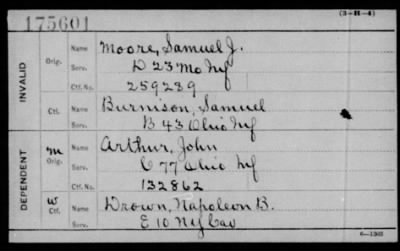 175601
(3-H-4)
INVALID
Orig. Name Moore, Samuel J.
Serv. D 23 Mo Inf
Ctf. No. 259289
Ctf. Name Burnison, Samuel
Serv. B 43 Ohio Inf
DEPENDENT
m Orig. Name Arthur, John
Serv. C 77 Ohio Inf
Ctf. No. 132862
W Ctf. Name Drown, Napoleon B.
Serv. E 10 NY Cav